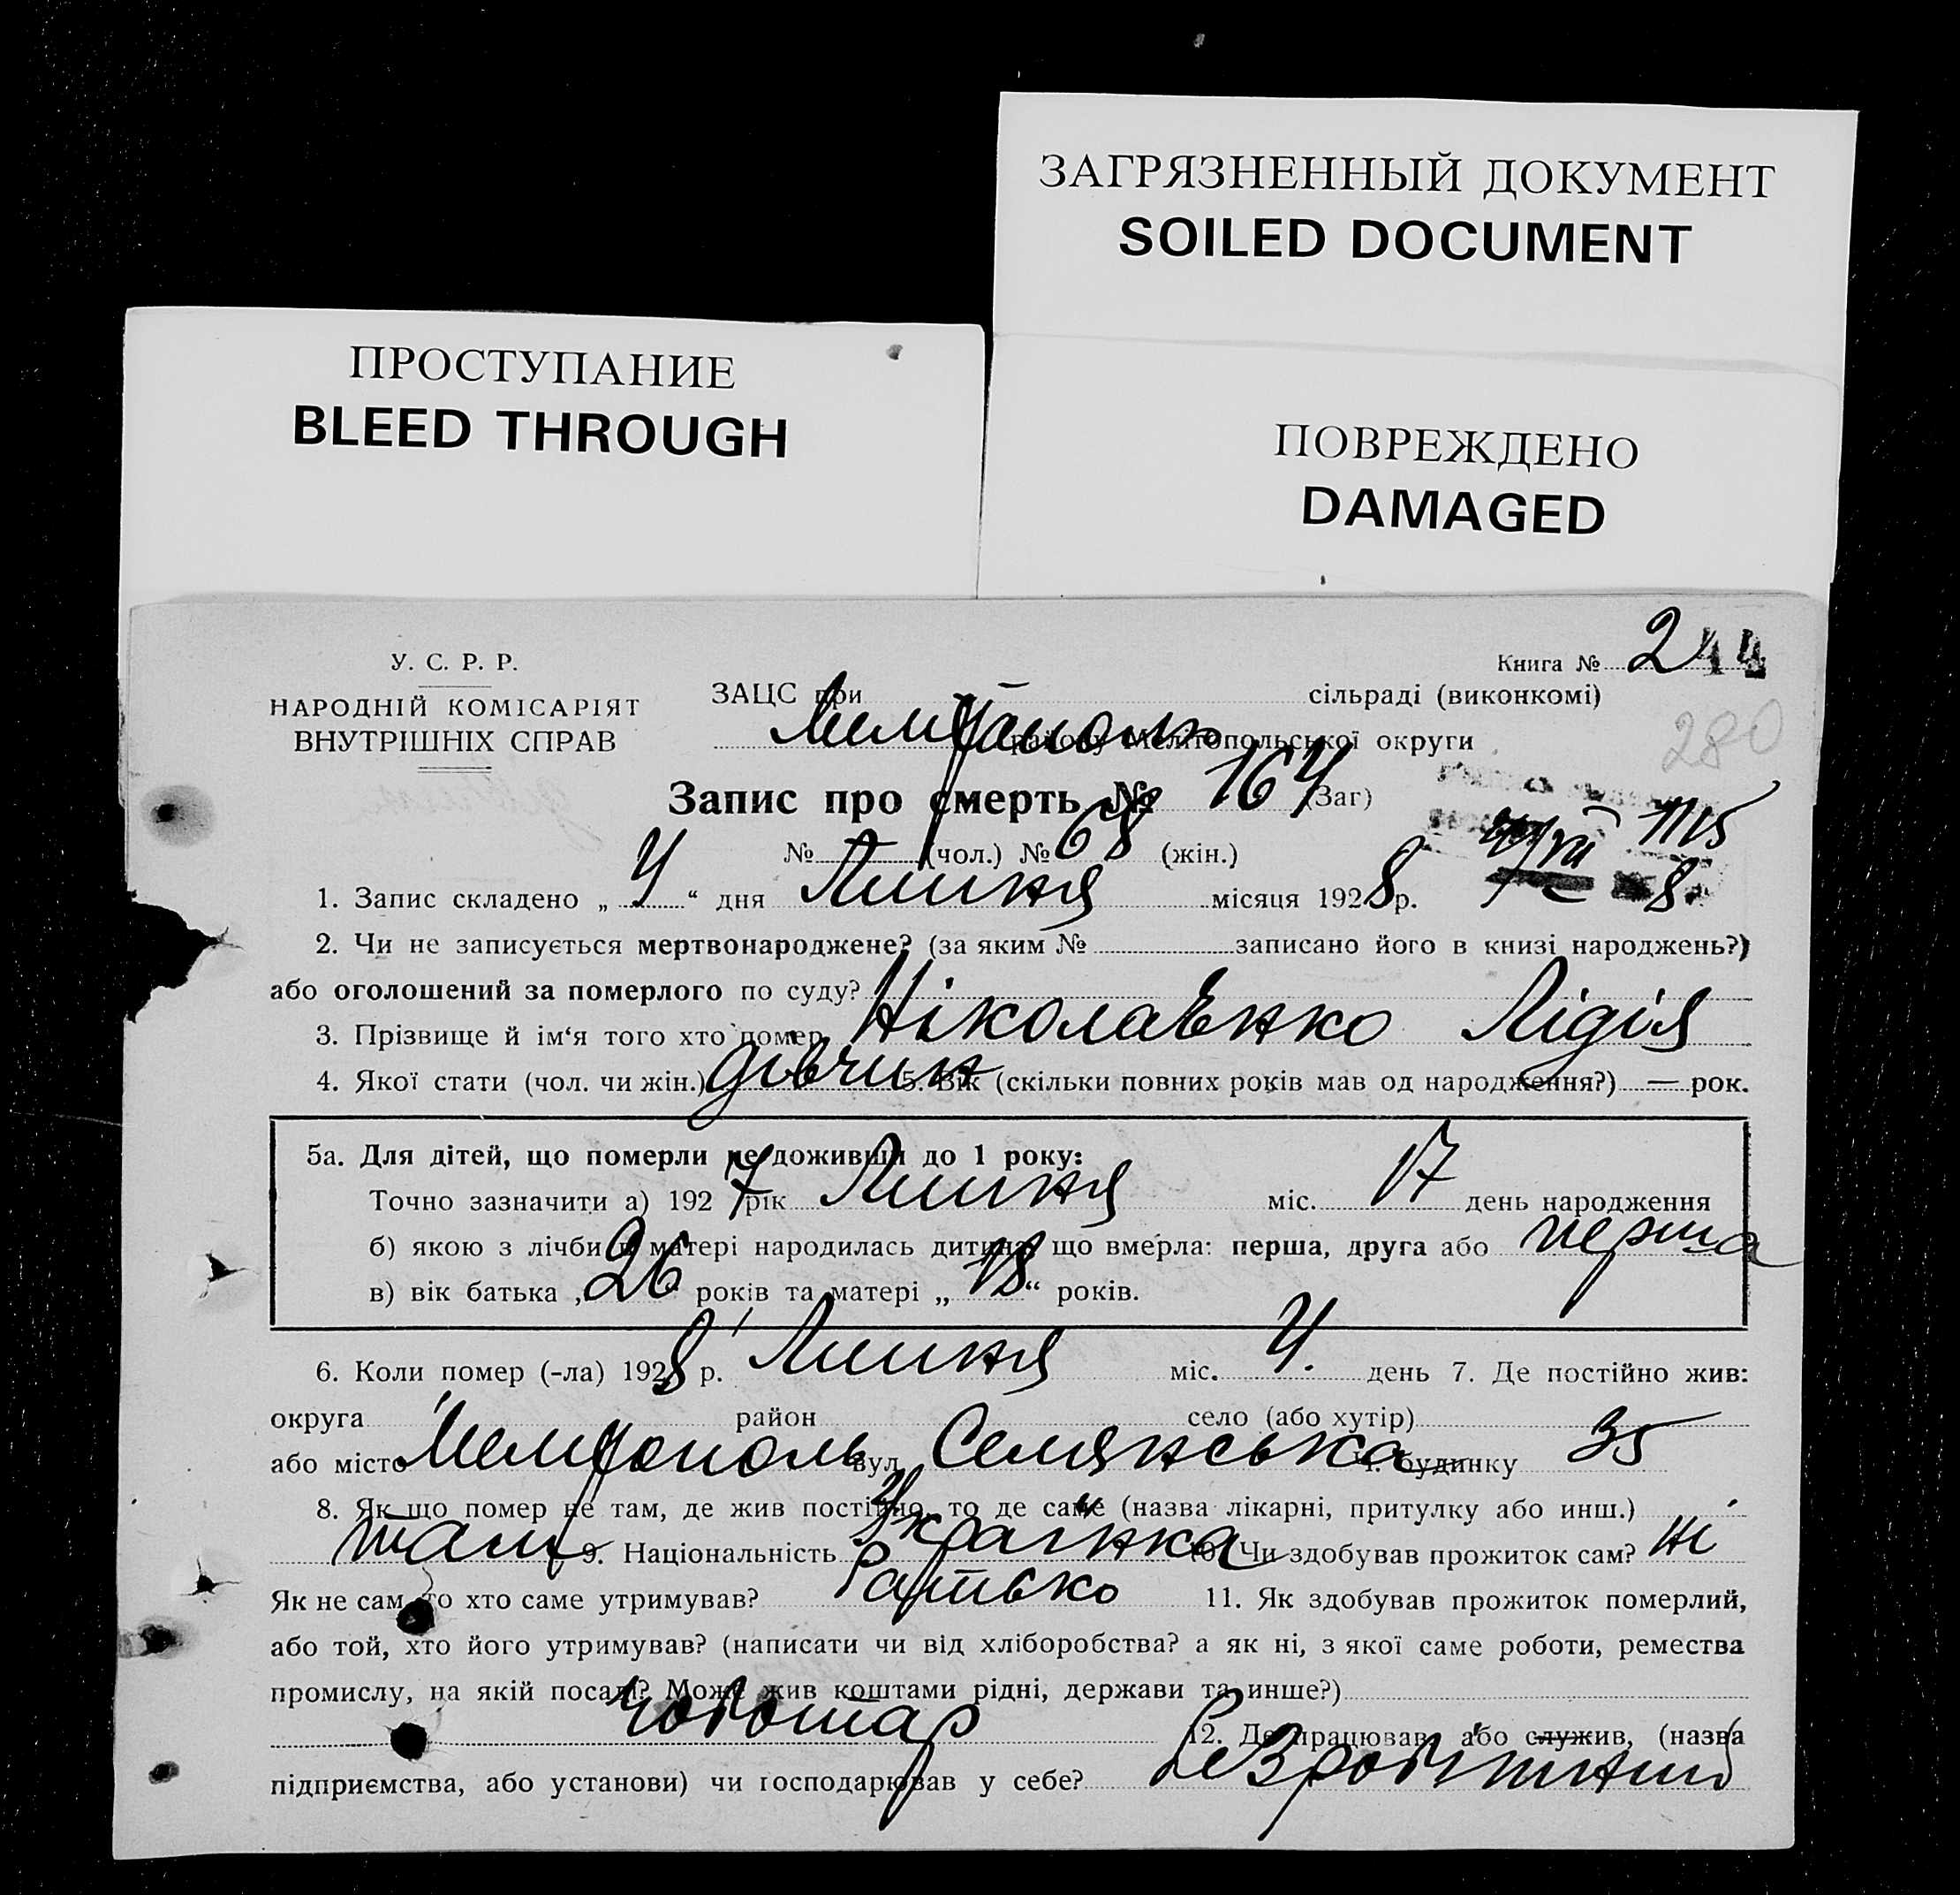 ЗАГРЯЗНЕННЫЙ ДОКУМЕНТ
SOILED DOCUMENT
ПРОСТУПАНИЕ
BLEED THROUGH
ПОВРЕЖДЕНО
DAMAGED
У. С. Р. Р.
НАРОДНІЙ КОМІСАРІЯТ
ВНУТРІШНІХ СПРАВ
Книга № 2 44
280
ЗАЦС при сільраді (виконкомі)
району Мелітопольської округи
Запис про смерть № 164 (Заг)
№ (чол.) № 68 (жін.)
1. Запис складено „ 4 “ дня Липня місяця 1928 р.
2. Чи не записується мертвонароджене? (за яким № записано його в книзі народжень?)
або оголошений за померлого по суду?
3. Прізвище й ім‘я того хто помер Ніколаєнко Лідія
4. Якої стати (чол. чи жін.) дівчин 5. Вік (скільки повних років мав од народження?) — рок.
5а. Для дітей, що померли не доживши до 1 року:
Точно зазначити а) 1927 рік Липня міс. 17 день народження
б) якою з лічби в матері народилась дитина, що вмерла: перша, друга або перша
в) вік батька „ 26 “ років та матері „ 18 “ років.
6. Коли помер (-ла) 1928 р. Липня міс. 4. день 7. Де постійно жив:
округа район село (або хутір)
або місто Мелітополь вул. Селянська ч. будинку 35
8. Як що помер не там, де жив постійно, то де саме (назва лікарні, притулку або инш.)
там 9. Національність Українка 10. Чи здобував прожиток сам? ні
Як не сам, то хто саме утримував? Батько 11. Як здобував прожиток померлий,
або той, хто його утримував? (написати чи від хліборобства? а як ні, з якої саме роботи, ремества
промислу, на якій посаді? Може жив коштами рідні, держави та инше?)
чоботар 12. Де працював, або служив, (назва
підприємства, або установи) чи господарював у себе? Безробітний